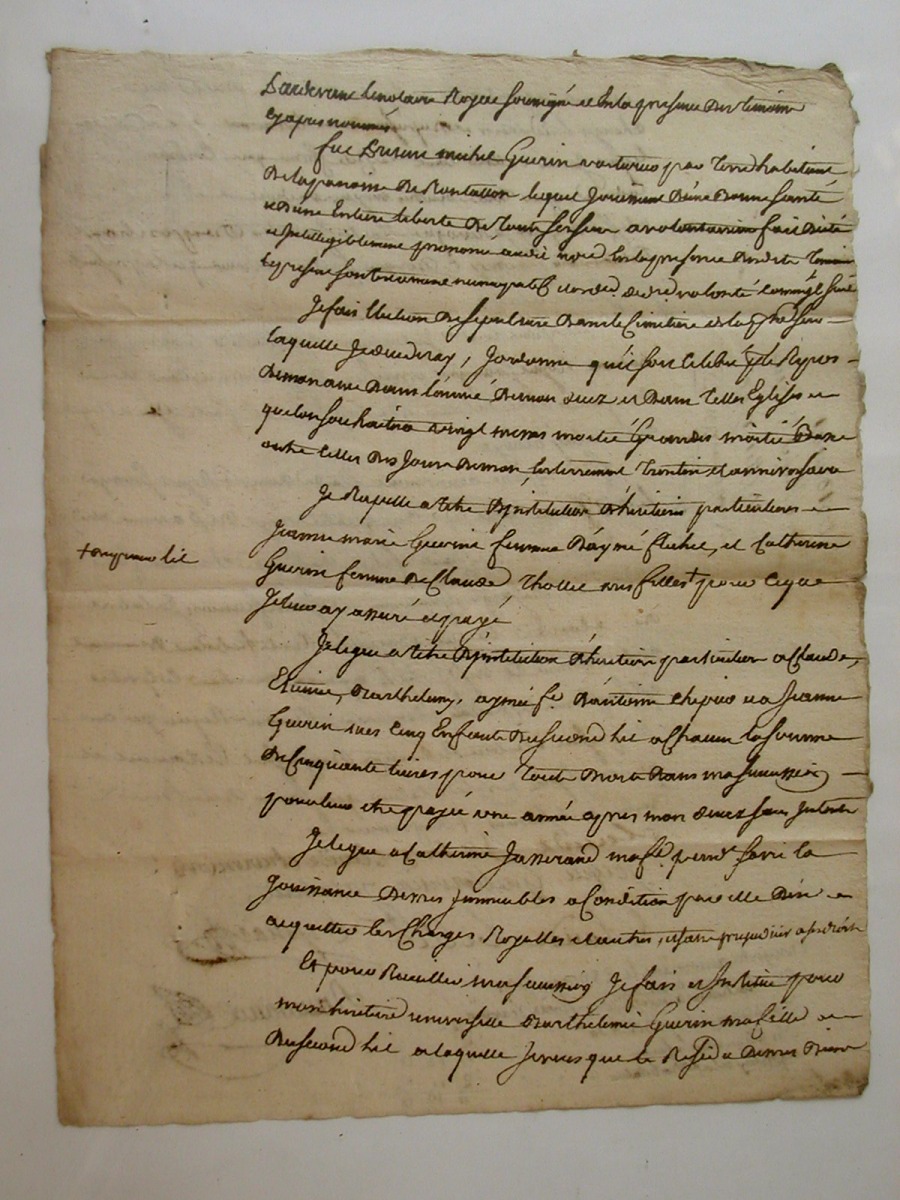 Pardevant le notaire Royal soussigné et En la presence Des temoins
Cy apres nommés
fut Present michel Guerin voiturier par Terre habitant
De la paroisse De lequel Jouissant D'une Bonne Santé
et D'une Entiere liberté De tous ses sens a volontairement fait Dicté
et Intelligiblement prononcé audit no.re En la presence Desdits temoins
le present son testament nuncupatif et ord.ce de der.e volonté comme s'ensuit
Je fais Election De sepulture Dans le Cimetiere de la p.sse sur
laquelle Je decederay, J'ordonne qu'il soit celebré p.r le Repos
De mon ame Dans l'année De mon decez et Dans telles Eglises
que l'on souhaitera vingt messes moitié Grandes moitié Basse
outre celles Des Jours De mon Enterrement trentin et anniversaire
Je Rapelle a titre D'institution D'heritiers particulieres
Jeanne marie Guerin femme D'aymé et Catherine
Guerin femme De Claude thollet mes filles + pour ce que
Je leur ay assuré et payé
+ du premier lit
Je legue a titre D'institution D'heritiers particuliers a Claude,
Etienne, Barthelemy, aymée f.e D'antoine et a Jeanne
Guerin mes Cinq Enfants Du second lit a Chacun la somme
De Cinquante livres pour touts Droits Dans ma succession
pour leur etre payée une année apres mon decez sans Interets
Je legue a Catherine Jasserand ma f.e la
Jouissance De mes Immeubles a Condition par elle D'en
acquitter les Charges Royalles et autres, et sans prejudicier a ses droits
Et pour Recueillir ma succession Je fais et Institue pour
mon heritiere universelle Barthelemie Guerin ma fille
Du second lit a laquelle Je veux que le Residu De mes Biens